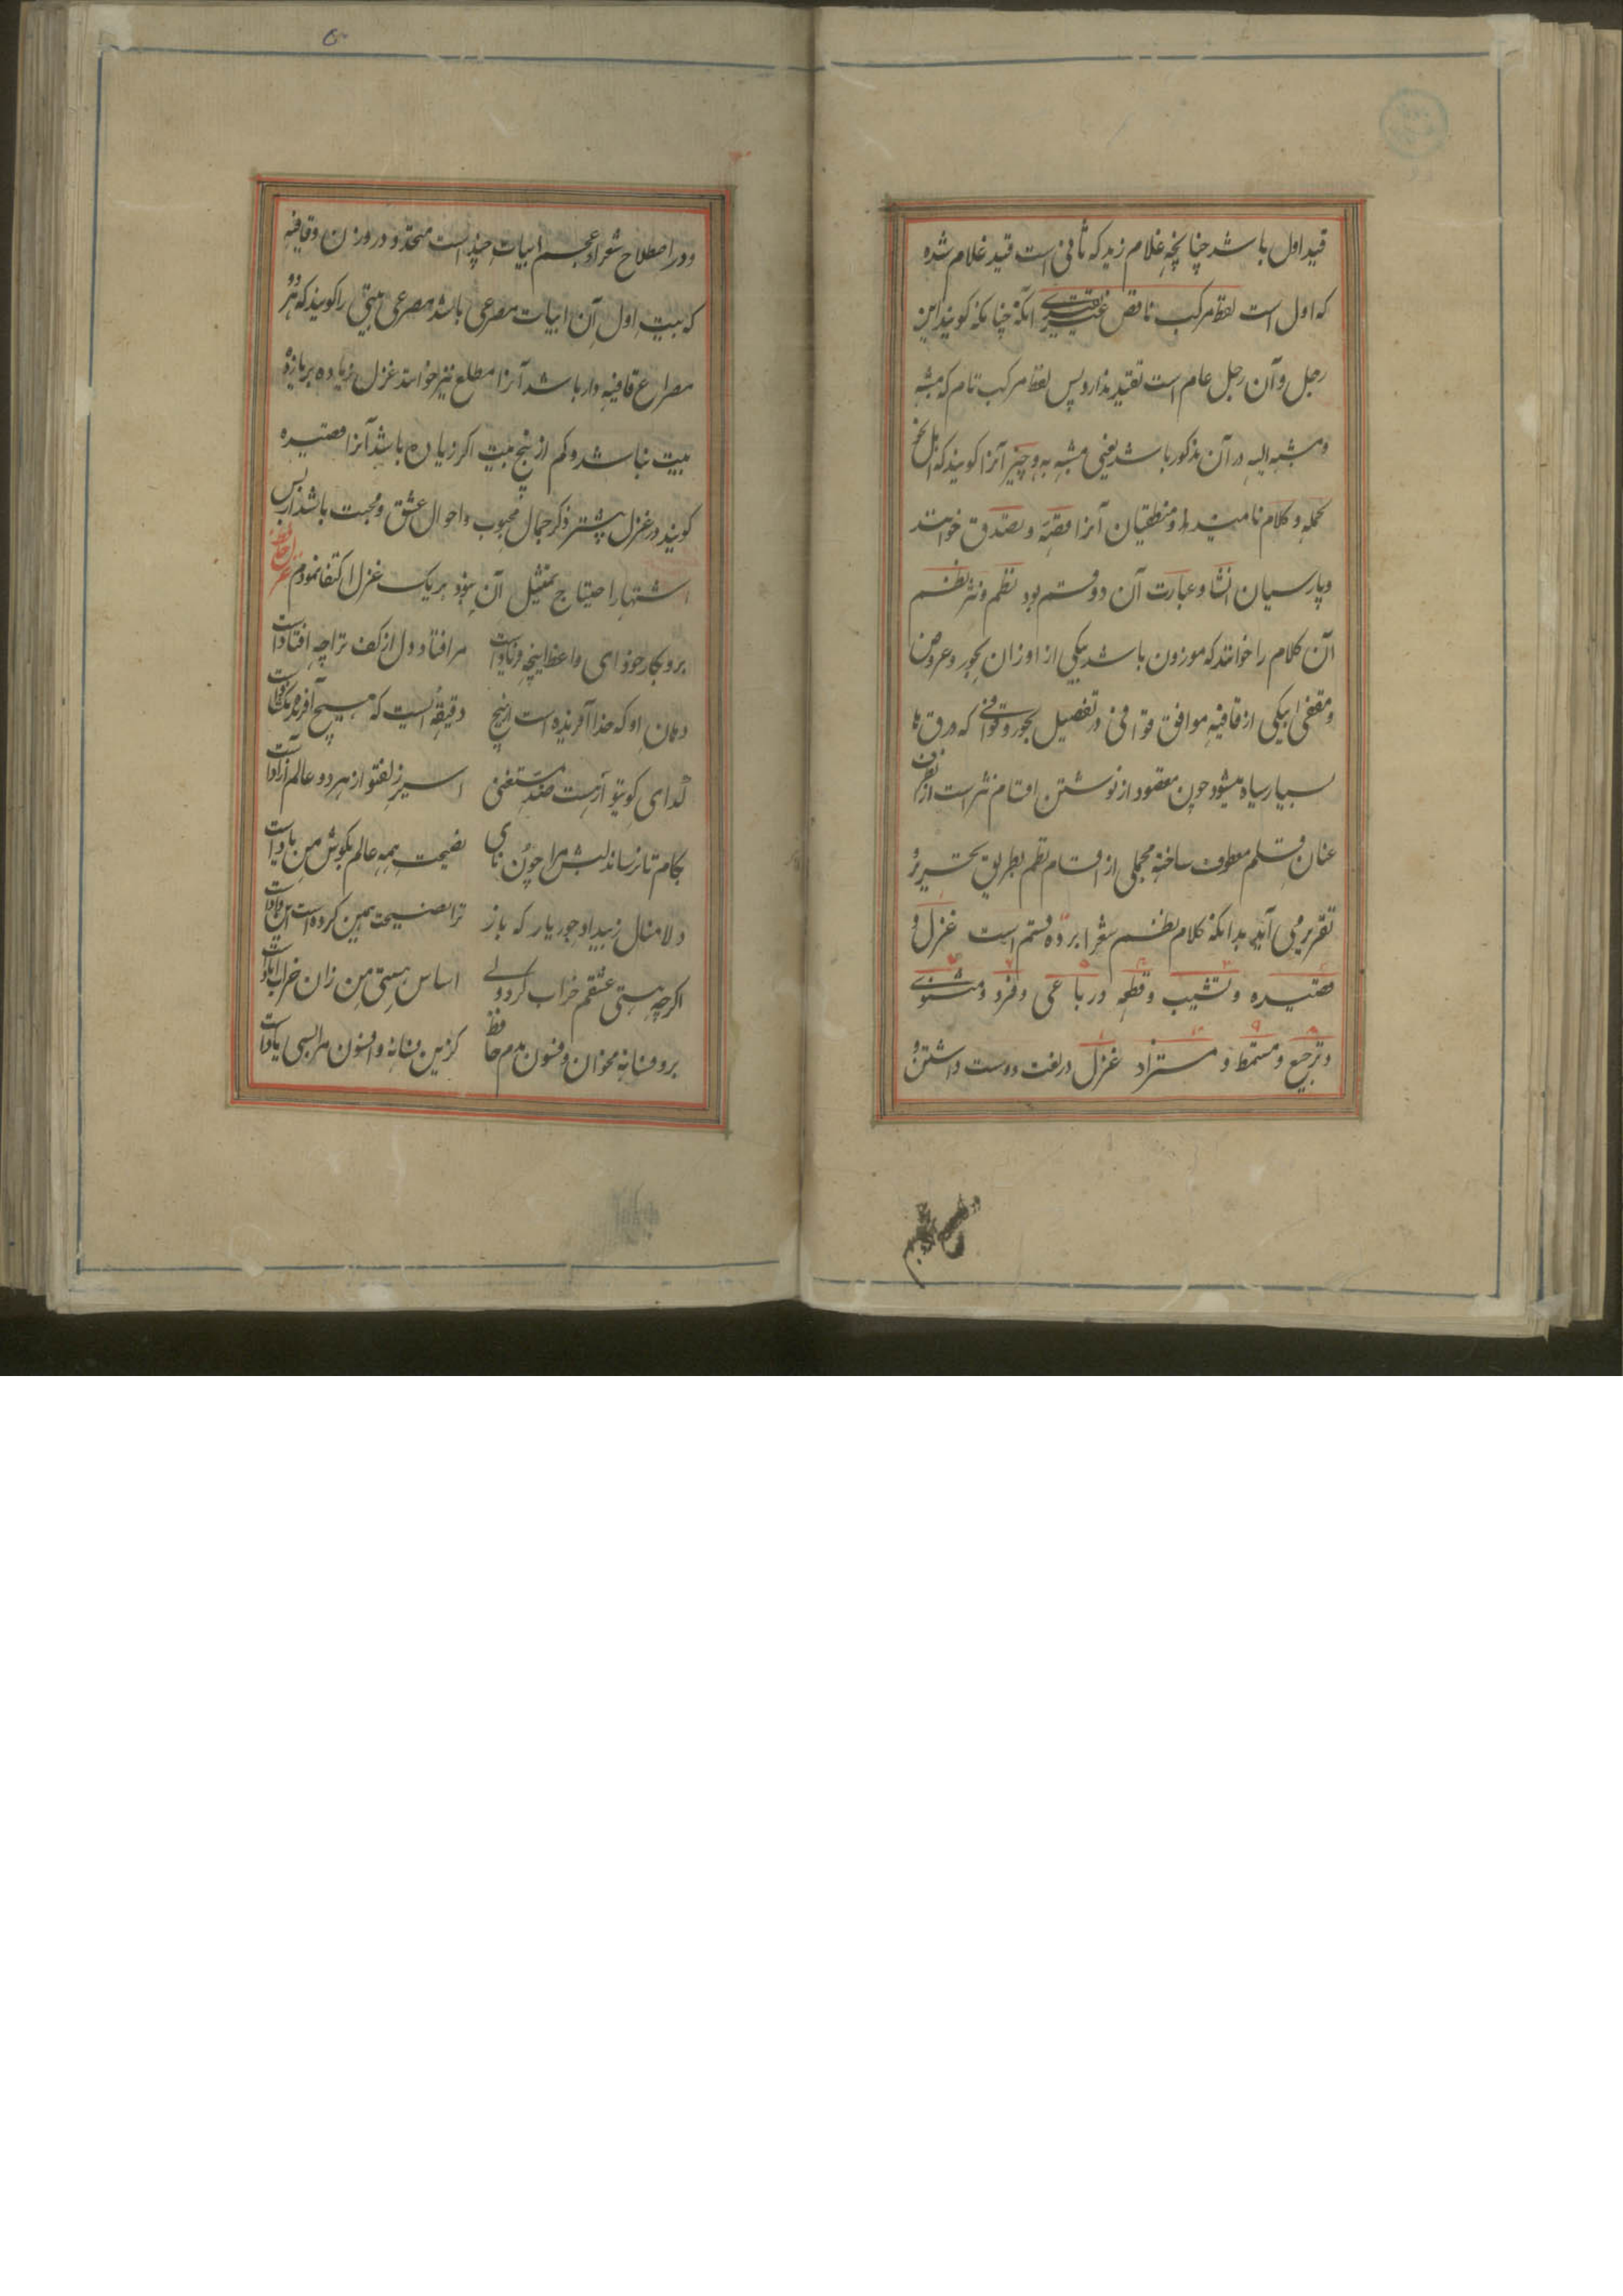 قید اول باشد چنانچه غلام زید که ثانی است قید غلام شده
که اول است لفظ مرکب ناقص غیر تقییدی آنکه چنانکه گویند این
رجل و آن رجل عام است تقیید ندارد پس لفظ مرکب تام که مشبه
و مشبه الیه در آن مذکور باشد یعنی مشبه به و چیز آنرا گویند که اهل نحو
جمله و کلام نامیند و منطقیان آنرا قضیه و تصدق خوانند
و پارسیان انشا و عبارت آن دو قسم بود نظم و نثر نظم
آن کلام را خوانند که موزون باشد بیکی از اوزان بحور و عروض
و مقفی بیکی از قافیه موافق قوافی در تفصیل بحور و قوافی که ورق ها
بسیار سیاه میشود چون مقصود از نوشتن اقسام نثر است از نظر آن
عنان قلم معطوف ساخته مجملی از اقسام نظم بطریق تحریر و
تقریر می آید بدانکه کلام نظم شعرا بر ده قسم است غزل و
قصیده و تشبیب و قطعه و رباعی و فرد و مثنوی
و ترجیع و مسمط و مستزاد غزل در لغت دوست داشتن و
و در اصطلاح شعراء عجم ابیات چند است متحد در وزن و قافیه
که بیت اول آن ابیات مصرعی باشد مصرعی بیتی را گویند که هر دو
مصراع قافیه دار باشد آنرا مطلع نیز خوانند غزل زیاده بر یازده
بیت نباشد و کم از پنج بیت اگر زیاده باشد آنرا قصیده
گویند در غزل بیشتر ذکر جمال محبوب و احوال عشق و محبت باشد از بس
اشتهار احتیاج بتمثیل آن نبود بر یک غزل اکتفا نمودم غزل حافظ
برو بکار خود ای واعظ اینچه فریادست مرا فتاد دل از کف ترا چه افتادست
دهان او که خدا آفریده است از هیچ دقیقه ایست که هیچ آفریده نگشادست
گدای کوی تو از هشت خلد مستغنی اسیر زلف تو از هر دو عالم آزادست
بکام تا نرساند لبش مرا چون نای نصیحت همه عالم بگوش من بادست
دلا منال ز بیداد و جور یار که باز ترا نصیحت همین کرده است این دادست
اگرچه مستی عشقم خراب کرد ولی اساس هستی من زان خراب آبادست
برو فسانه مخوان و فسون مدم حافظ کزین فسانه و افسون مرا بسی یادست